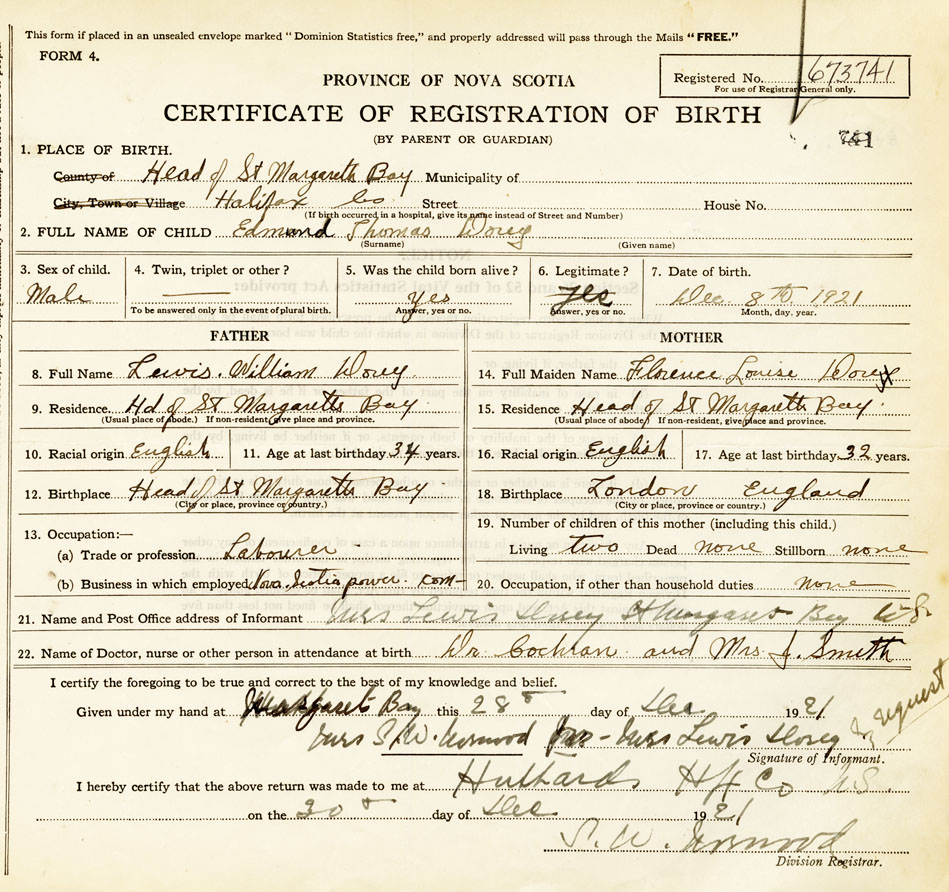 This form if placed in an unsealed envelope marked "Dominion Statistics free," and properly addressed will pass through the Mails "FREE."
FORM 4.
Registered No. 673741
For use of Registrar General only.
PROVINCE OF NOVA SCOTIA
CERTIFICATE OF REGISTRATION OF BIRTH
(BY PARENT OR GUARDIAN)
741
1. PLACE OF BIRTH.
County of Head of St Margarets Bay Municipality of
City, Town or Village Halifax Co Street House No.
(If birth occurred in a hospital, give its name instead of Street and Number)
2. FULL NAME OF CHILD Edmund Thomas Dorey
(Surname) (Given name)
3. Sex of child. 4. Twin, triplet or other? 5. Was the child born alive? 6. Legitimate? 7. Date of birth.
Male yes yes Dec. 8th 1921
To be answered only in the event of plural birth. Answer, yes or no. Answer, yes or no. Month, day, year.
FATHER MOTHER
8. Full Name Lewis. William Dorey 14. Full Maiden Name Florence Louise Dorey
9. Residence. Hd of St Margarets Bay 15. Residence Head of St Margarets Bay
(Usual place of abode.) If non-resident, give place and province. (Usual place of abode) If non-resident, give place and province.
10. Racial origin English 11. Age at last birthday 34 years. 16. Racial origin English 17. Age at last birthday 32 years.
12. Birthplace Head of St Margarets Bay 18. Birthplace London England
(City or place, province or country.) (City or place, province or country.)
13. Occupation:— 19. Number of children of this mother (including this child.)
(a) Trade or profession Labourer Living two Dead none Stillborn none
(b) Business in which employed Nova Scotia power. com- 20. Occupation, if other than household duties none
21. Name and Post Office address of Informant Mrs Lewis Dorey St Margaret Bay N.S.
22. Name of Doctor, nurse or other person in attendance at birth Dr Cochran and Mrs J. Smith
I certify the foregoing to be true and correct to the best of my knowledge and belief.
Given under my hand at Margarets Bay this 28 day of Dec 1921
Mrs S. W. for - Mrs Lewis Dorey by request
Signature of Informant.
I hereby certify that the above return was made to me at Hubbards Hfx Co N.S.
on the 30 day of Dec 1921
S. W.
Division Registrar.